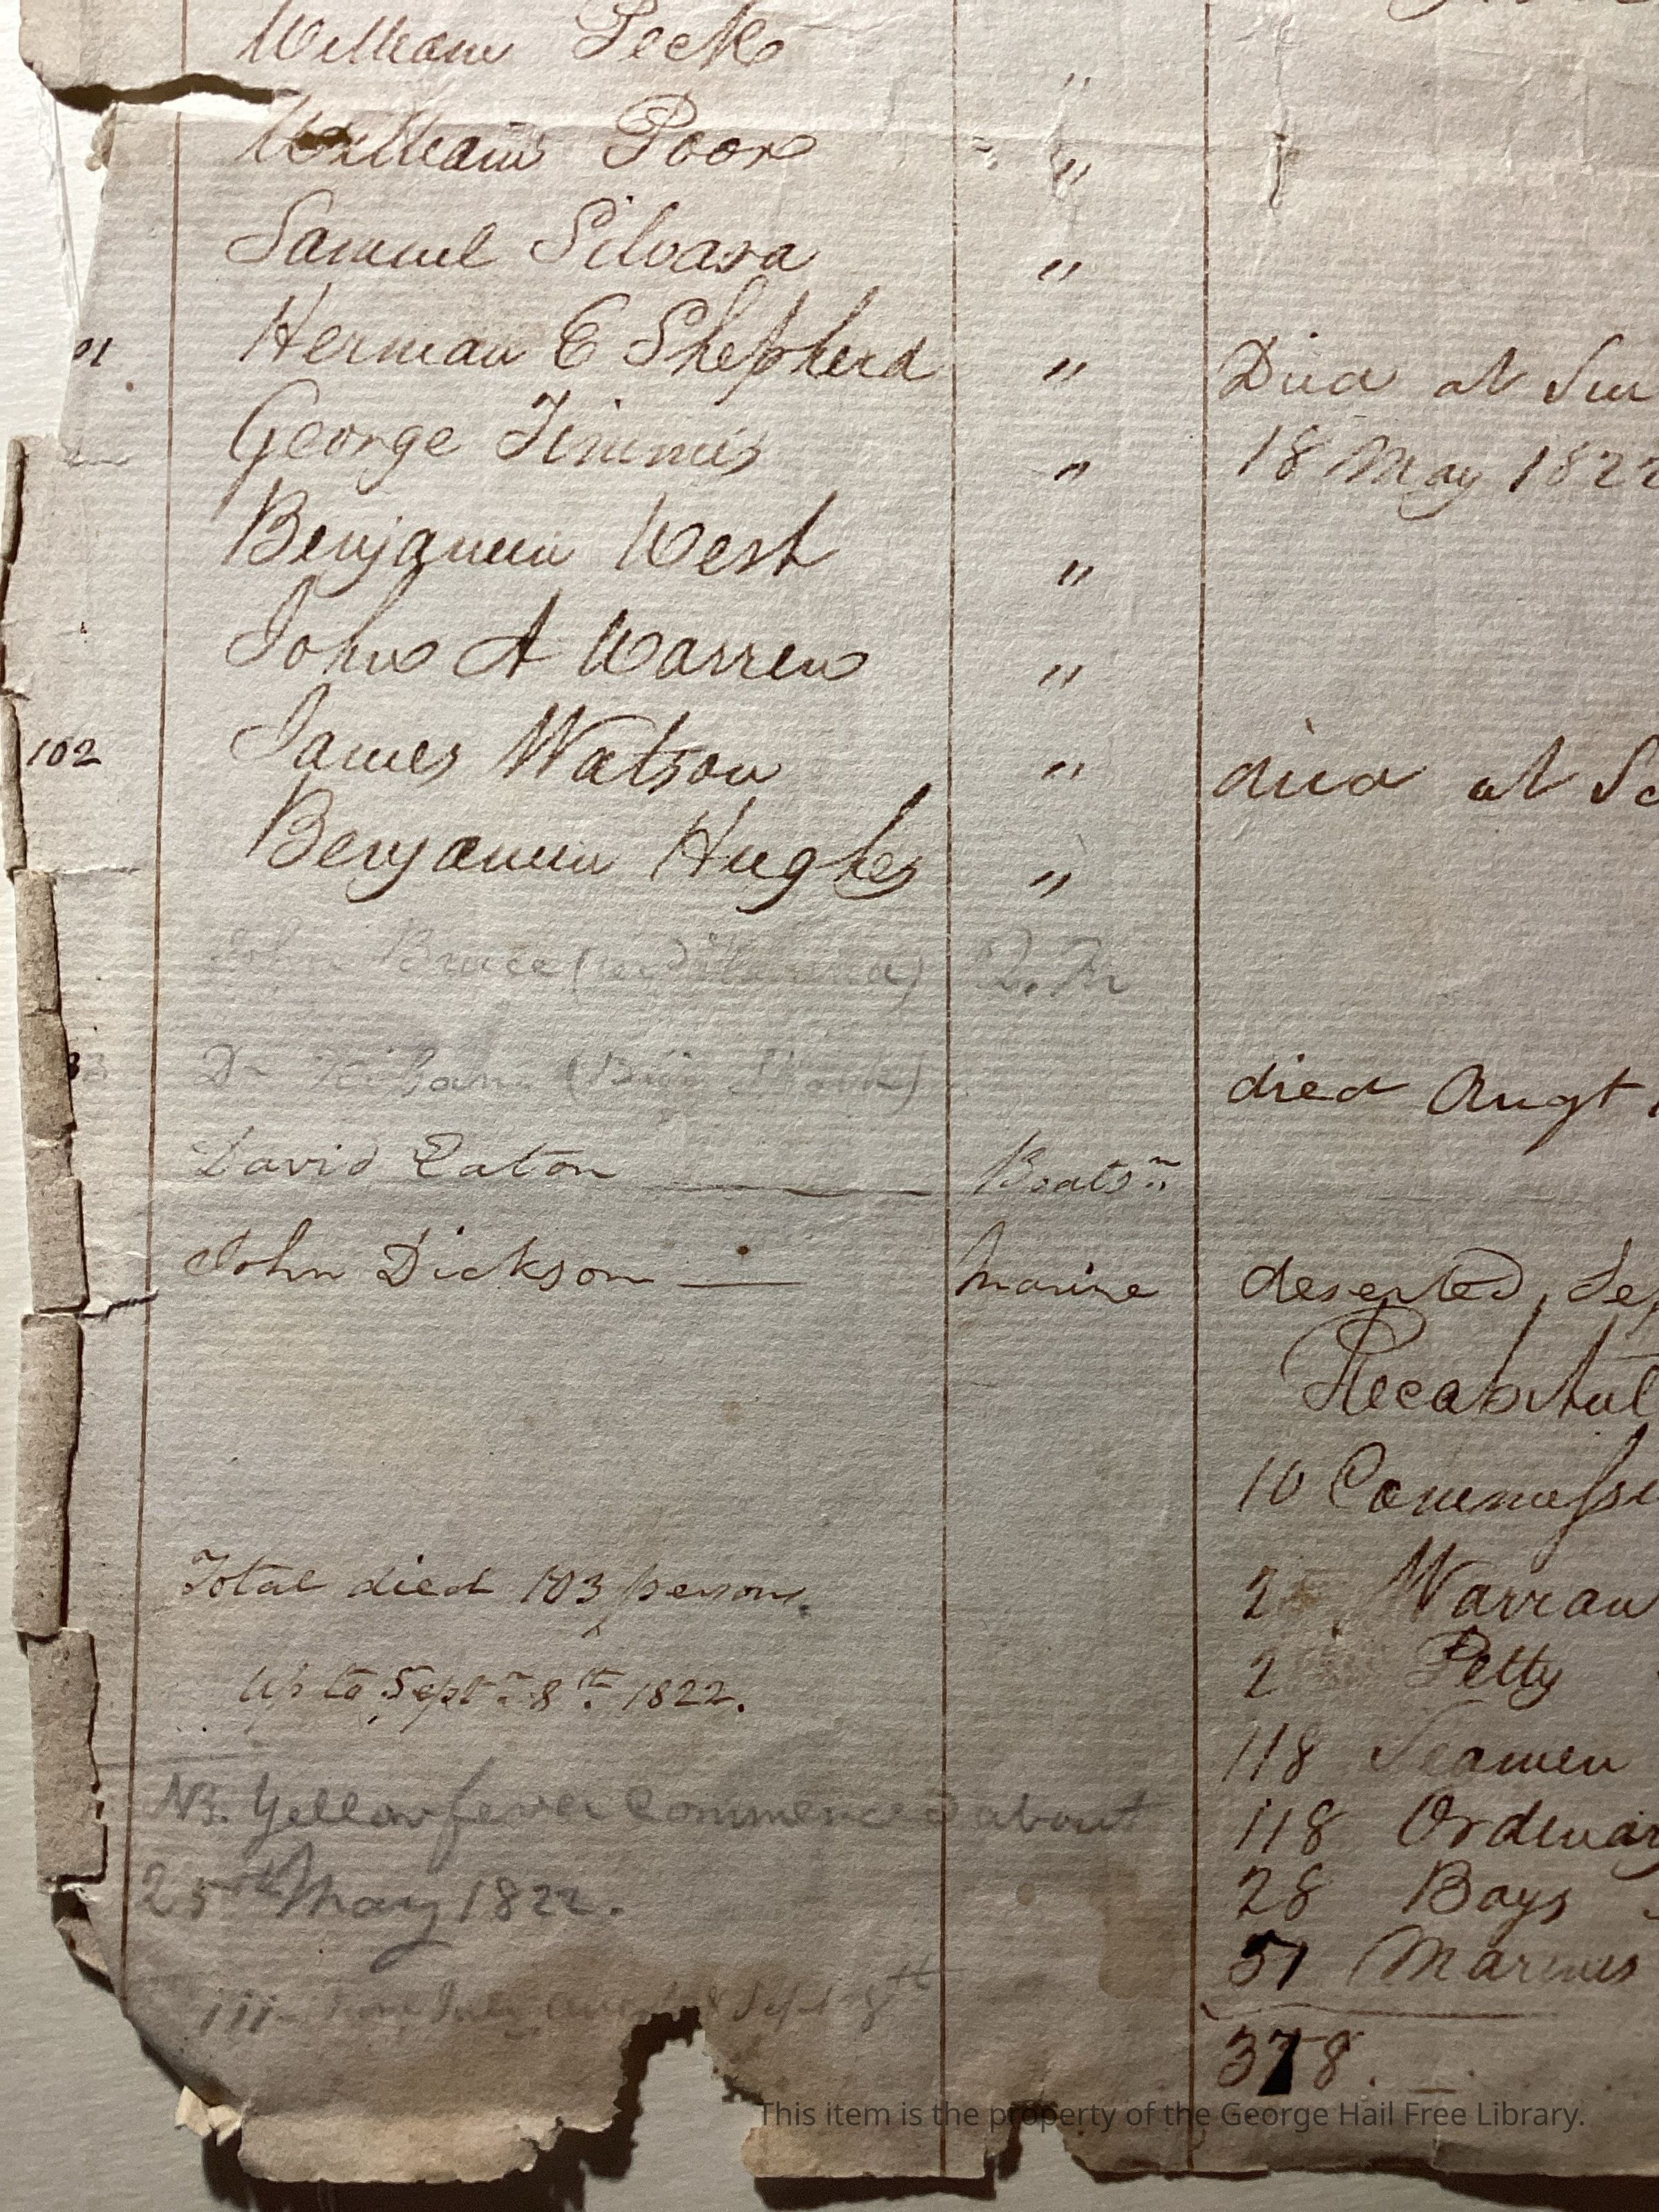 William Peck
William Poor "
Samuel Silvara "
91 Herman E Shepherd " Died at
George Timmis " 18 May 1822
Benjamin West "
John A Warren "
102 James Watson " died at
Benjamin Hughes "
John Bruce
Dr died Augt
David Eaton Boatsn
John Dickson Marine deserted
Recapitul
10 Commissi
2 Warran
Total died 103 persons.
2 Petty
Up to Septr 8th 1822.
118 Seamen
NB. Yellow fever Commenced about
118 Ordinary
25th May 1822.
28 Boys
51 Marines
Sept 8th
378.
This item is the property of the George Hail Free Library.